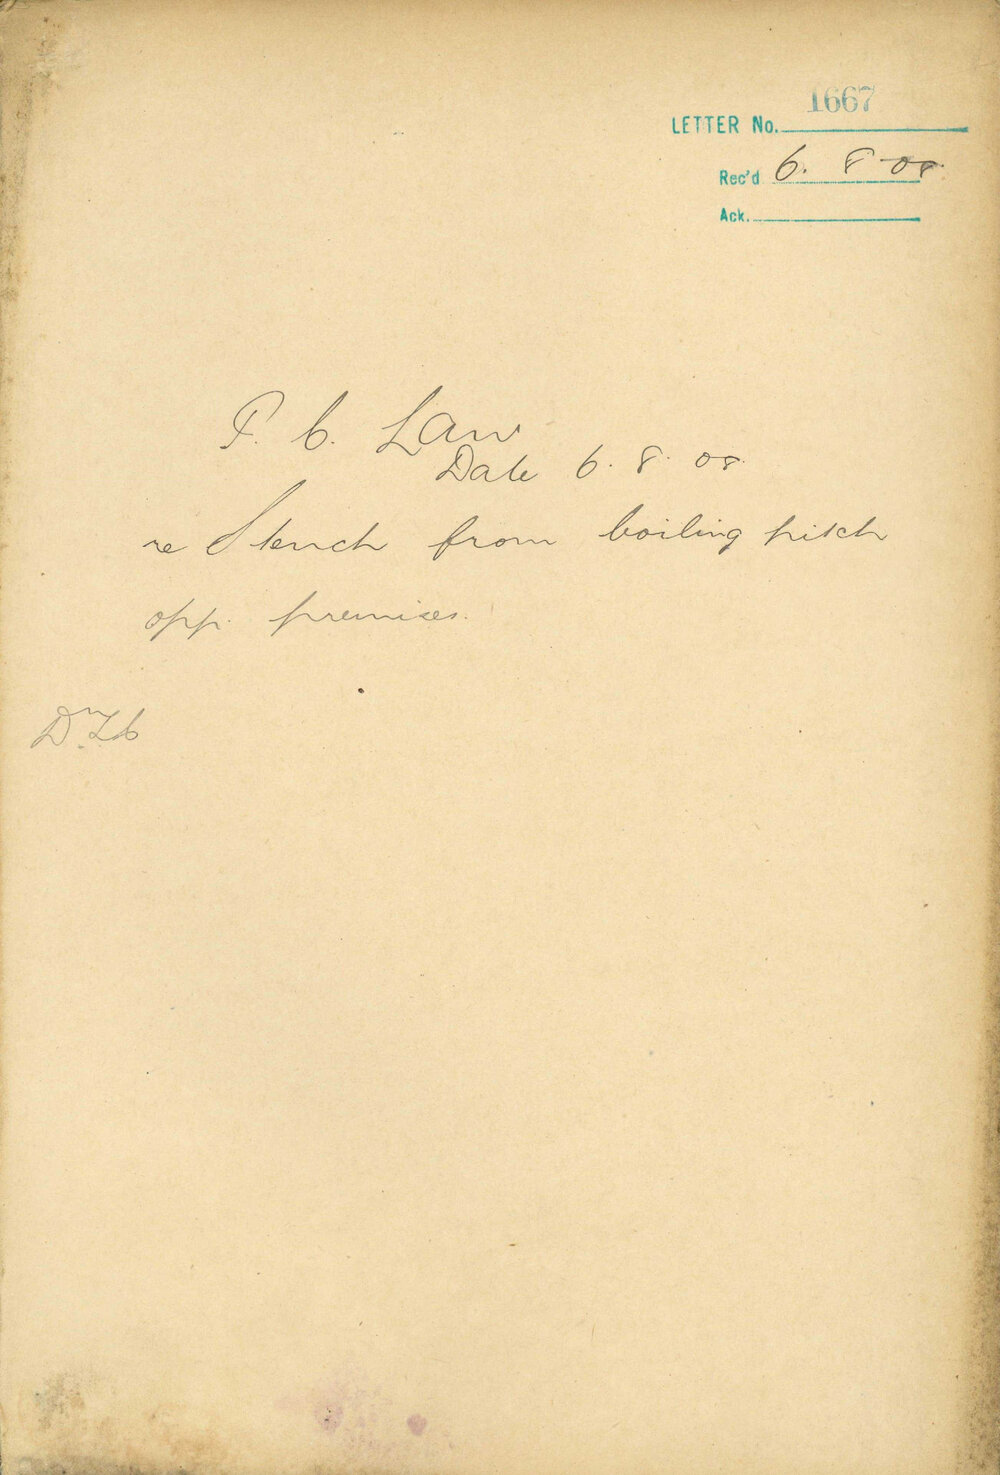 1667
LETTER No.
Rec'd 6. 8 08.
Ack.
P. C. Law
Date 6. 8. 08.
re Stench from boiling pitch
opp. premises.